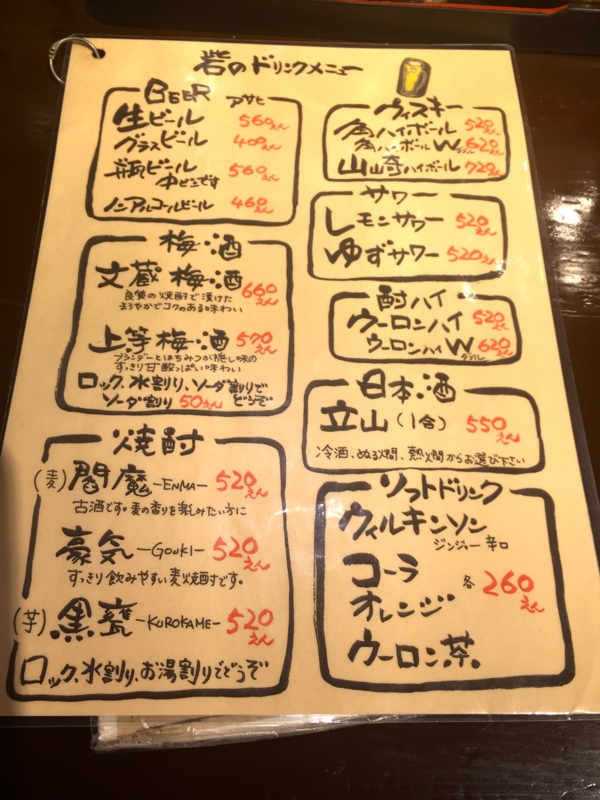 岩のドリンクメニュー
BEER アサヒ
生ビール 560えん
グラスビール 400えん
瓶ビール 560えん
中ビンです
ノンアルコールビール 460えん
梅酒
文蔵梅酒 660えん
良質の焼酎で漬けた
まろやかでコクのある味わい
上等梅酒 570えん
ブランデーとはちみつが隠し味の
すっきり甘酸っぱい味わい
ロック、水割り、ソーダ割りで
ソーダ割り 50えん どうぞ
焼酎
(麦) 閻魔 -ENMA- 520えん
古酒です。麦の香りを楽しみたい方に
豪気 -GOUKI- 520えん
すっきり飲みやすい麦焼酎です。
(芋) 黒甕 -KUROKAME- 520えん
ロック、水割り、お湯割りでどうぞ
ウィスキー
角ハイボール 520えん
角ハイボールW ダブル 620えん
山崎ハイボール 720えん
サワー
レモンサワー 520えん
ゆずサワー 520えん
酎ハイ
ウーロンハイ 520えん
ウーロンハイW ダブル 620えん
日本酒
立山 (1合) 550えん
冷酒、ぬる燗、熱燗からお選び下さい
ソフトドリンク
ウィルキンソン
ジンジャー 辛口
コーラ
オレンジ
各260えん
ウーロン茶。